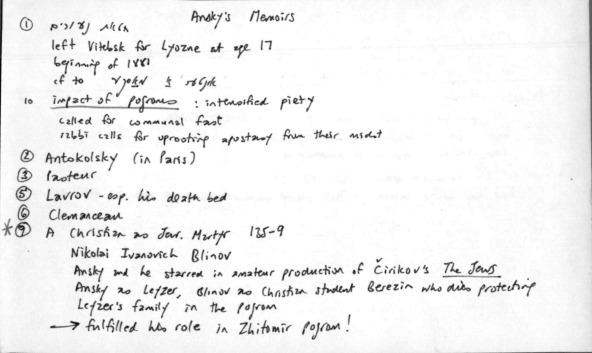 Ansky's Memoirs
①
left Vitebsk for Lyozne at age 17
beginning of 1881
cf to
10 impact of pogroms : intensified piety
called for communal fast
rabbi calls for uprooting apostasy from their midst
② Antokolsky (in Paris)
③ Pasteur
⑤ Lavrov - esp. his death bed
⑥ Clemanceau
* ⑨ A Christian as Jew. Martyr 135-9
Nikolai Ivanovich Blinov
Ansky and he starred in amateur production of Čirikov's The Jews
Ansky as Leyzer, Blinov as Christian student Berezin who dies protecting
Leyzer's family in the pogrom
→ fulfilled his role in Zhitomir pogrom!